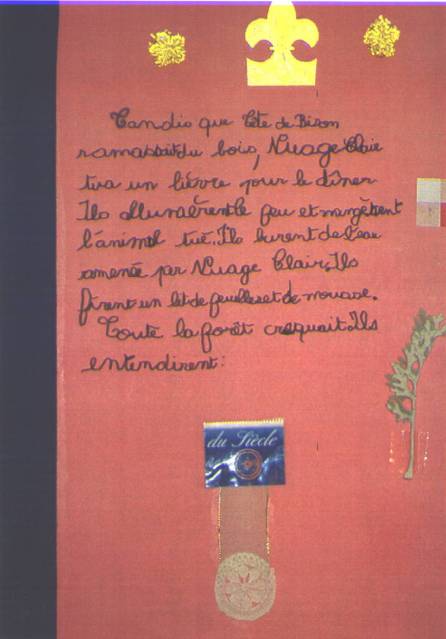 Tandis que Tête de Bison
ramassait du bois, Nuage Clair
tira un lièvre pour le dîner
Ils allumèrent le feu et mangèrent
l'animal tué. Ils burent de l'eau
amenée par Nuage Clair. Ils
firent un lit de feuilles et de mousse.
Toute la forêt craquait. Ils
entendirent :
du Siècle